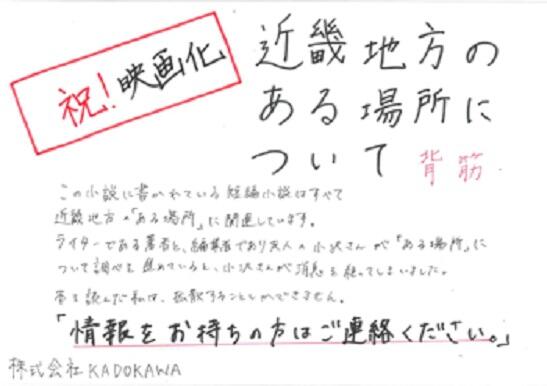 祝!映画化
近畿地方の
ある場所に
ついて 背筋
この小説に書かれている短編小説はすべて
近畿地方の「ある場所」に関連しています。
ライターである著者と、編集者であり友人の小沢さんが「ある場所」に
ついて調べを進めていると、小沢さんが消息を絶ってしまいました。
を読んだ私は、拡散することしかできません。
「情報をお持ちの方はご連絡ください。」
株式会社 KADOKAWA